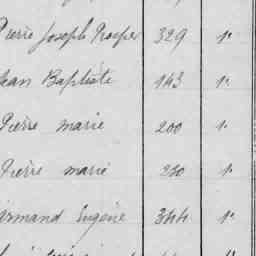 Pierre Joseph Prosper 329 1º
Jean Baptiste 143 1º
Pierre marie 200 1º
Pierre marie 250 1º
Armand Eugène 344 1º